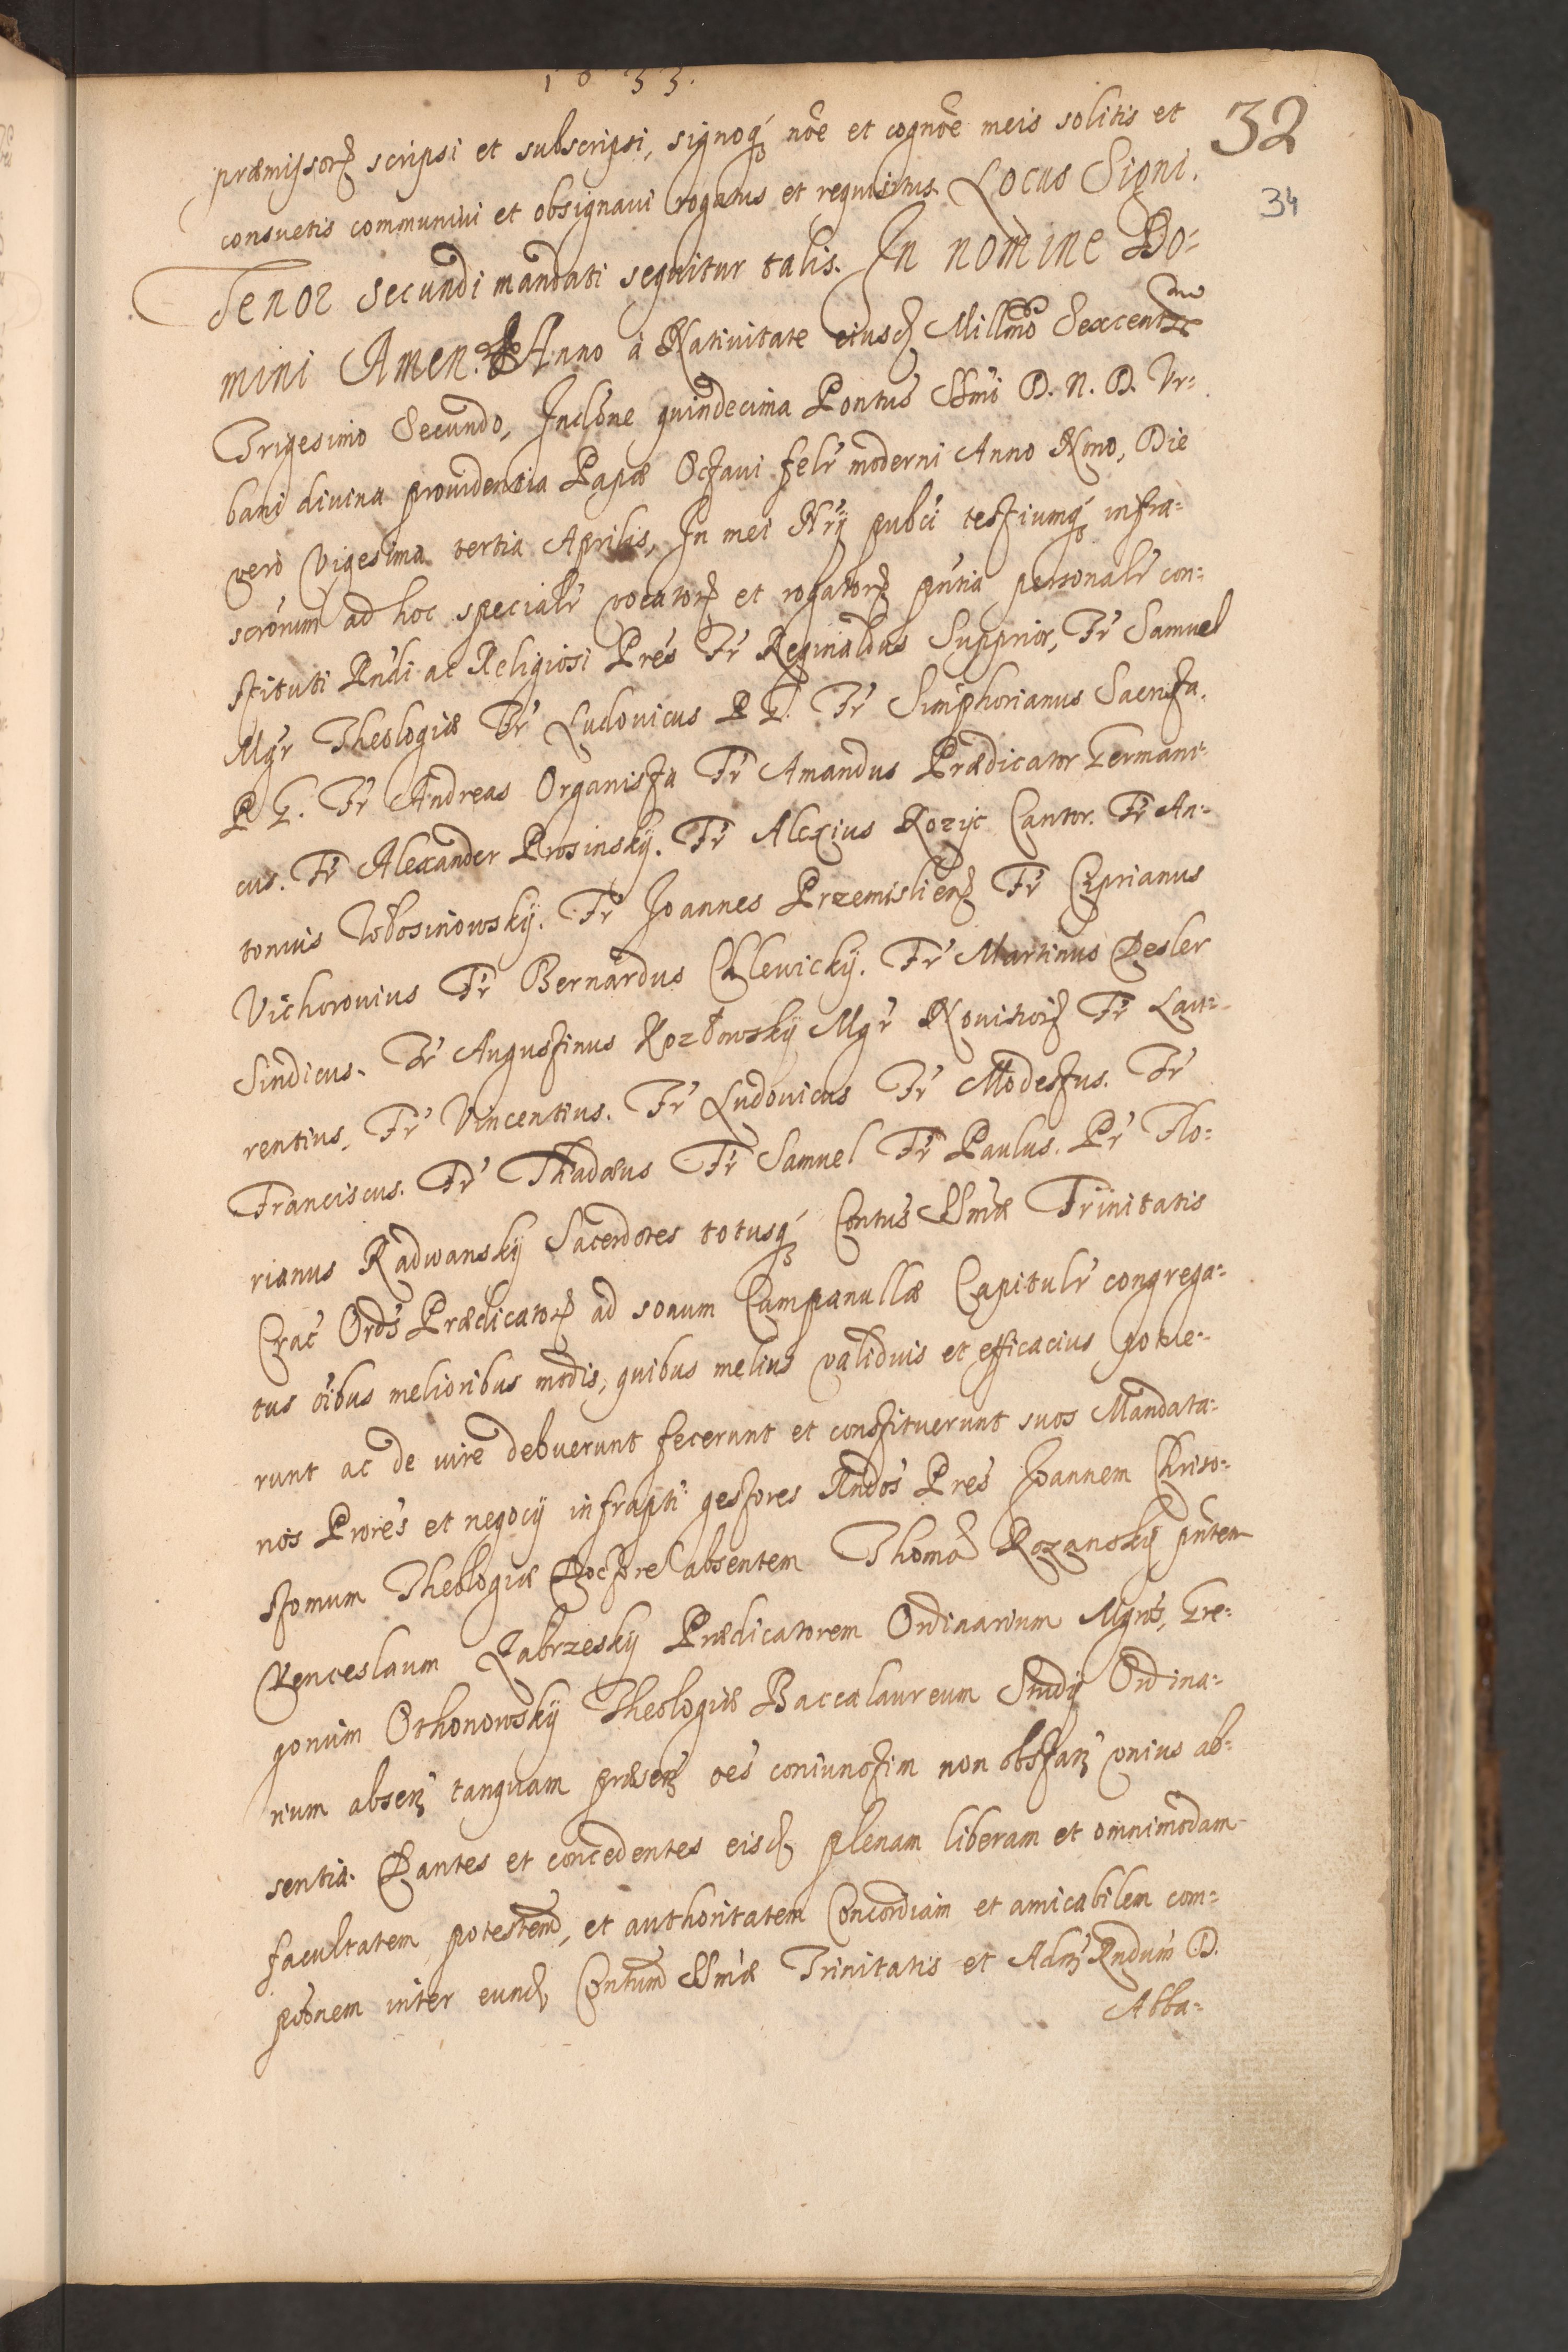 1633.
32
34
præmissorũ scripsi et subscripsi, signoq́ nõe et cognõe meis solitis et
consuetis communivi et obsignavi rogatus et requisitus. Locus Signi.
Tenor secundi mandati sequitur talis. In nomine Do=
mini Amen. Anno à Nativitate eiusd Millmo Sexcentmo
Trigesimo Secundo, Indõne quindecima Pontus SSmi D. N. D. Vr=
bani divina providentia Papæ Octavi felr moderni Anno Nono, Die
verò Vigesima tertia Aprilis, In mei Nrij pubci testiumq́ infra=
scrõrum ad hoc specialr vocatorũ et rogatorũ pñtia personalr con=
stituti Rñdi ac Religiosi Pres Fr Reginaldus Supprior, Fr Samuel
Mgr Theologiæ Fr Ludovicus P G. Fr Simphorianus Sacrista.
P G. Fr Andreas Organista Fr Amandus Prædicator Germani=
cus. Fr Alexander Prosinskij. Fr Alexius Kozijc Cantor. Fr An=
tonius Włosinowskij. Fr Joannes Przemisliens Fr Ciprianus
Vichorovius Fr Bernardus Chlevickij. Fr Martinus Desler
Sindicus. Fr Augustinus Kozłowskij Mgr Novitiorũ Fr Lau=
rentius, Fr Vincentius. Fr Ludovicus Fr Modestus. Fr
Franciscus. Fr Thadæus Fr Samuel Fr Paulus. Pr Flo=
rianus Radwanskij Sacerdotes totusq́ Contus SSmæ Trinitatis
Crac Ords Prædicatorũ ad sonum Campanullæ Capitulr congrega=
tus õibus melioribus modis, quibus melius validius et efficacius potue=
runt ac de iure debuerunt fecerunt et constituerunt suos Mandata=
rios Prores et negocij infrapti gestores Rndos Pres Joannem Chriso=
stomum Theologiæ Doctorẽ absentem Thomã Rozanskij pñtem
Venceslaum Zabrzeskij Prædicatorem Ordinarium Mgrũ, Gre=
gorium Othonowskij Theologiæ Baccalaureum Studij Ordina=
rium absen tanquam præsen oes coniunctim non obstan unius ab=
sentia. Dantes et concedentes eisd plenam liberam et omnimodam
facultatem potestem, et authoritatem Concordiam et amicabilem com=
põnem inter eund Contum SSmæ Trinitatis et Adm Rndum D.
Abba=